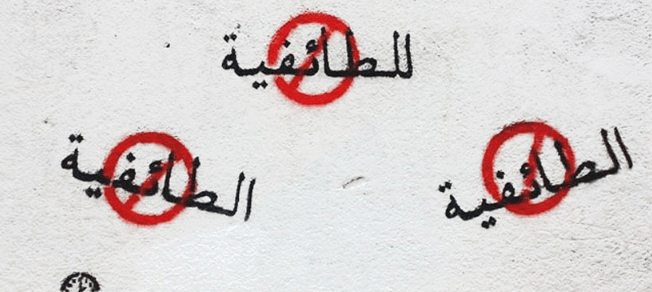 للطائفية
الطائفية
الطائفية